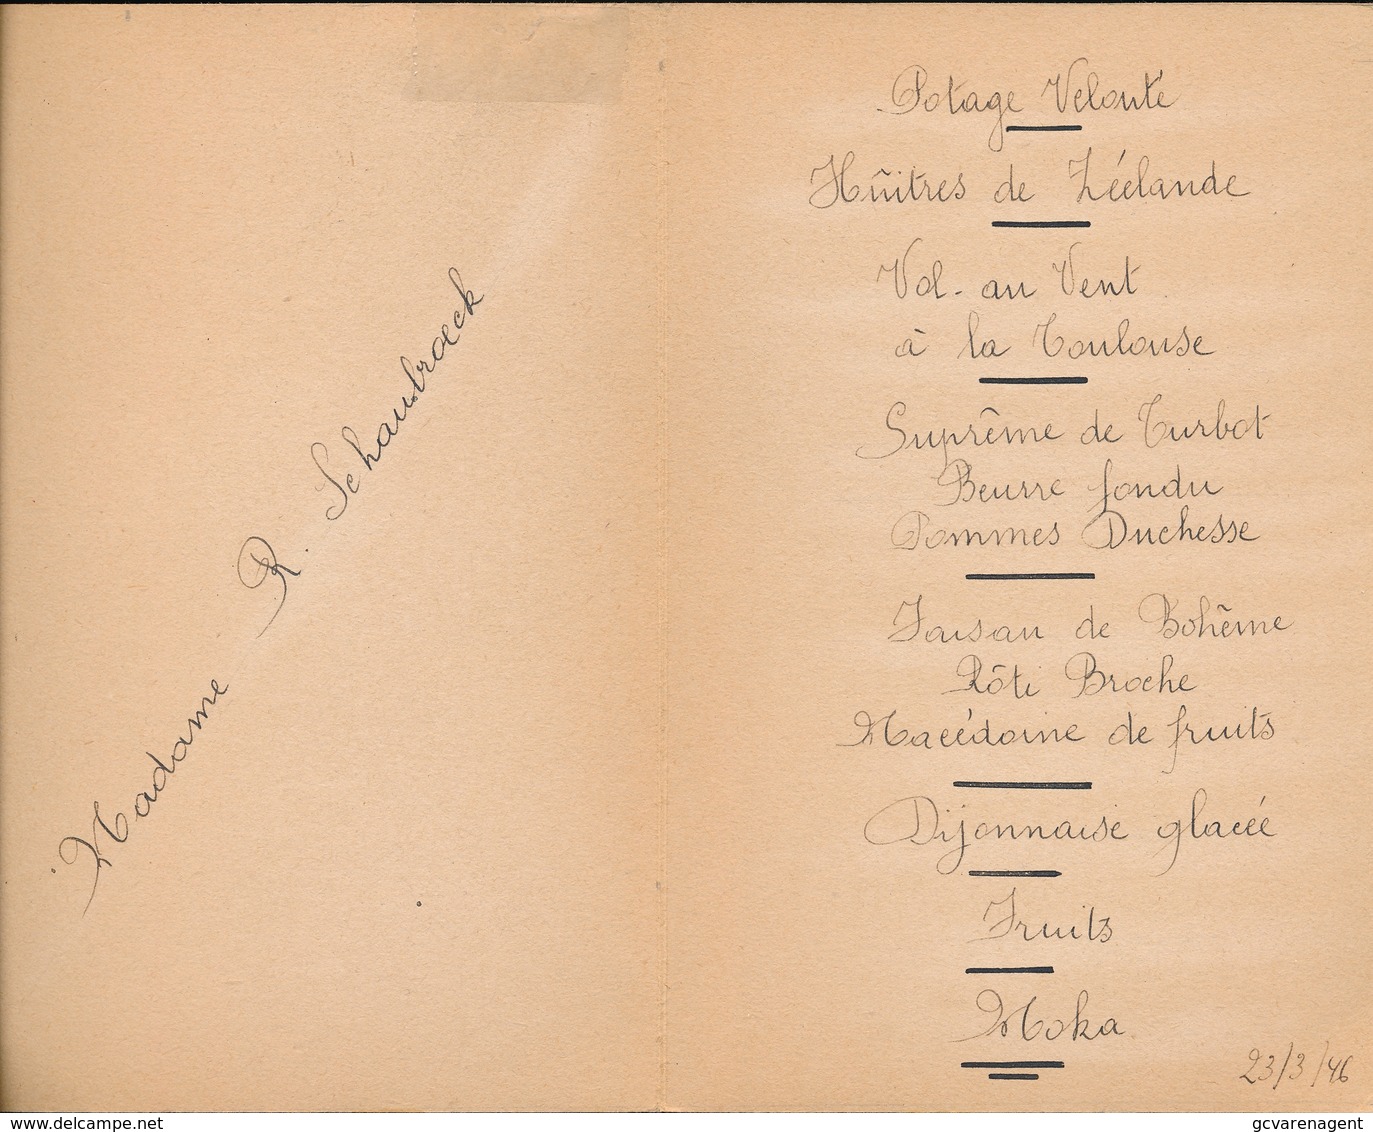 Madame R. Schaubroeck
Potage Velouté
Hûitres de Zéelande
Vol-au Vent
à la Toulouse
Suprême de Turbot
Beurre fondu
Pommes Duchesse
Faisan de Bohême
Rôti Broche
Macédoine de fruits
Dijonnaise glacée
Fruits
Moka
23/3/46
www.delcampe.net
gcvarenagent